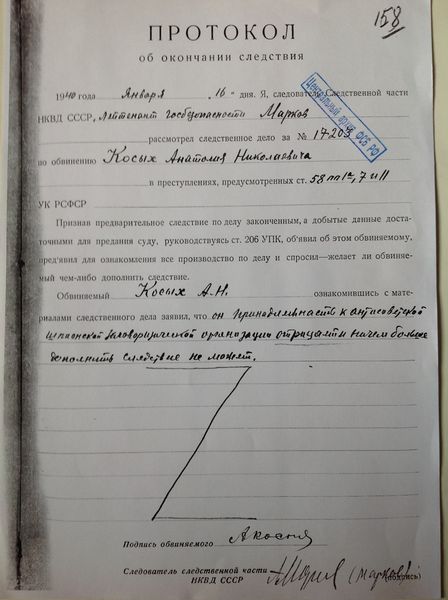 158
ПРОТОКОЛ
об окончании следствия
1940 года Января 16 дня. Я, следователь Следственной части
НКВД СССР, Лейтенант госбезопасности Марков
Центральный архив ФСБ РФ
рассмотрел следственное дело за № 17203
по обвинению Косых Анатолия Николаевича
в преступлениях, предусмотренных ст. 58 пп 1а, 7 и 11
УК РСФСР
Признав предварительное следствие по делу законченным, а добытые данные доста-
точными для предания суду, руководствуясь ст. 206 УПК, об'явил об этом обвиняемому,
пред'явил для ознакомления все производство по делу и спросил—желает ли обвиняе-
мый чем-либо дополнить следствие.
Обвиняемый Косых А.Н. ознакомившись с мате-
риалами следственного дела заявил, что он принадлежность к антисоветской
шпионской заговорщической организации отрицает и ничем больше
дополнить следствие не может.
Подпись обвиняемого А Косых
Следователь следственной части
НКВД СССР (Марков)
(подпись)